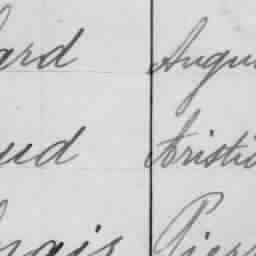 ard Augu
ud Aristi
ais Pier